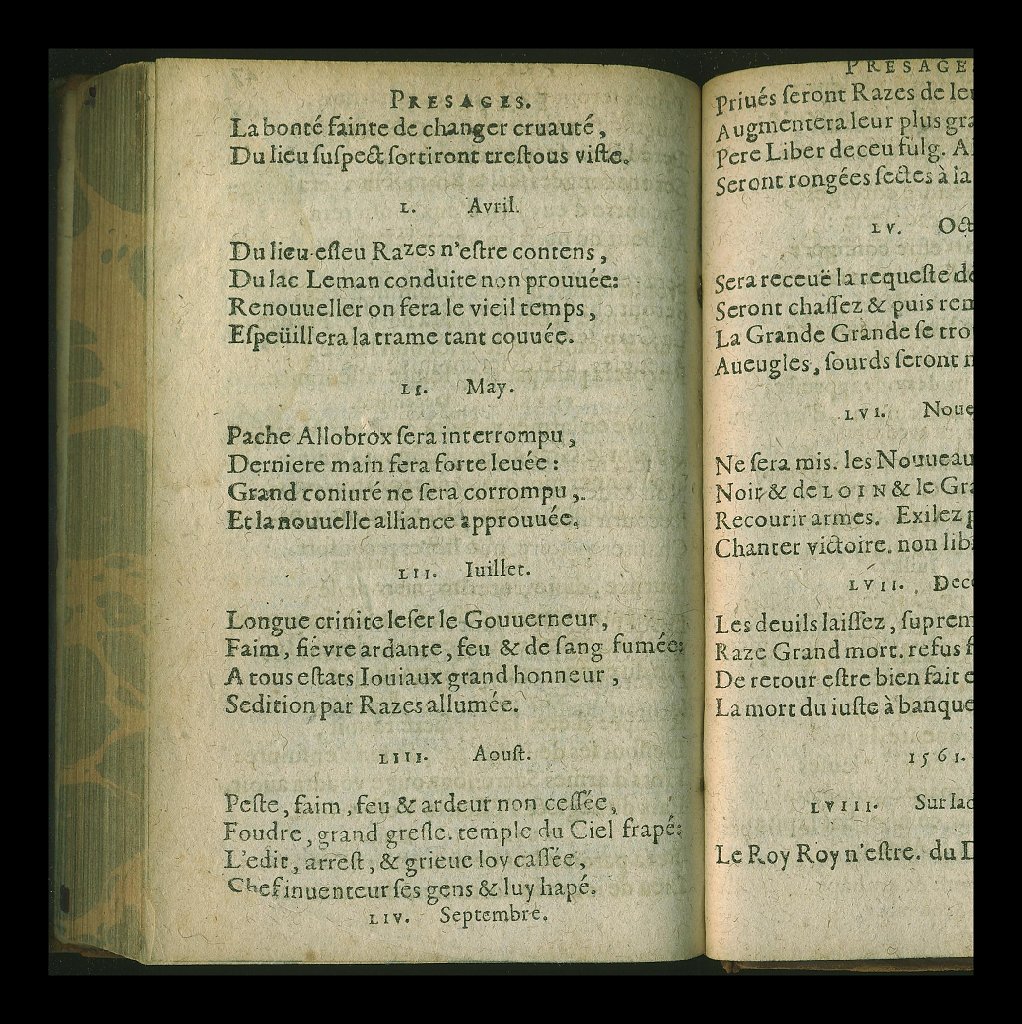 PRESAGES.
La bonté fainte de changer cruauté,
Du lieu suspect sortiront trestous viste.
L. Avril.
Du lieu esleu Razes n'estre contens,
Du lac Leman conduite non prouuée:
Renouueller on fera le vieil temps,
Espeüillera la trame tant couuée.
LI. May.
Pache Allobrox sera interrompu,
Derniere main fera forte leuée:
Grand coniuré ne sera corrompu,
Et la nouuelle alliance approuuée.
LII. Iuillet.
Longue crinite leser le Gouuerneur,
Faim, fiévre ardante, feu & de sang fumée:
A tous estats Iouiaux grand honneur,
Sedition par Razes allumée.
LIII. Aoust.
Peste, faim, feu & ardeur non cessée,
Foudre, grand gresle. temple du Ciel frapé:
L'edit, arrest, & grieue loy cassée,
Chef inuenteur ses gens & luy hapé.
LIV. Septembre.
PRESAGE
Priués seront Razes de
Augmentera leur plus
Pere Liber deceu fulg.
Seront rongées sectes à la
LV.
Sera receuë la requeste
Seront chassez & puis
La Grande Grande se
Aueugles, sourds seront
LVI.
Ne sera mis. les
Noir & de LOIN & le
Recourir armes. Exilez
Chanter victoire. non
LVII.
Les deuils laissez,
Raze Grand mort. refus
De retour estre bien fait
La mort du iuste à
1561.
LVIII. Sur
Le Roy Roy n'estre. du